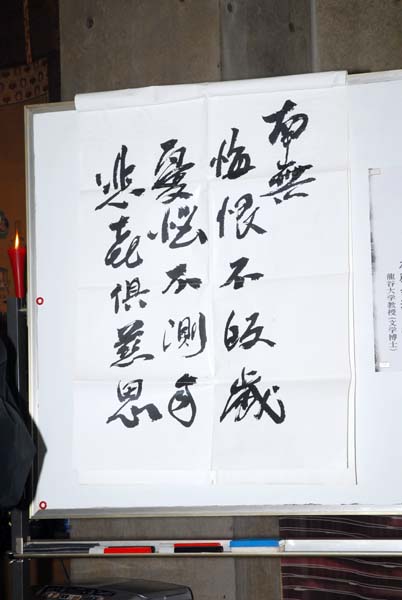 南無
悔恨不皈歳
憂悩不測年
悲喜倶慈恩
龍谷大学教授(文学博士)